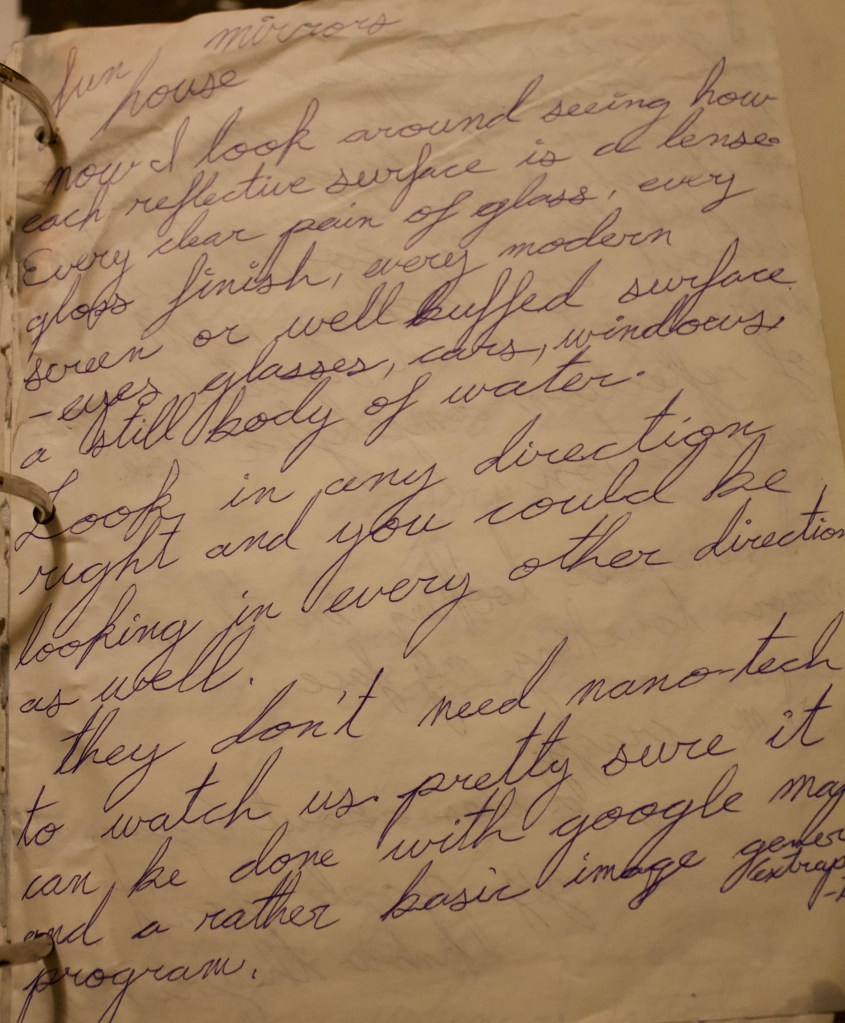 fun mirrors
house
now I look around seeing how
each reflective surface is a lense.
Every clear pain of glass, every
gloss finish, every modern
screen or well buffed surface.
-eyes glasses, cars, windows.
a still body of water.
Look in any direction
right and you could be
looking in every other direction
as well.
they don't need nano-tech
to watch us. pretty sure it
can be done with google map
and a rather basic image gener
extrap
program.